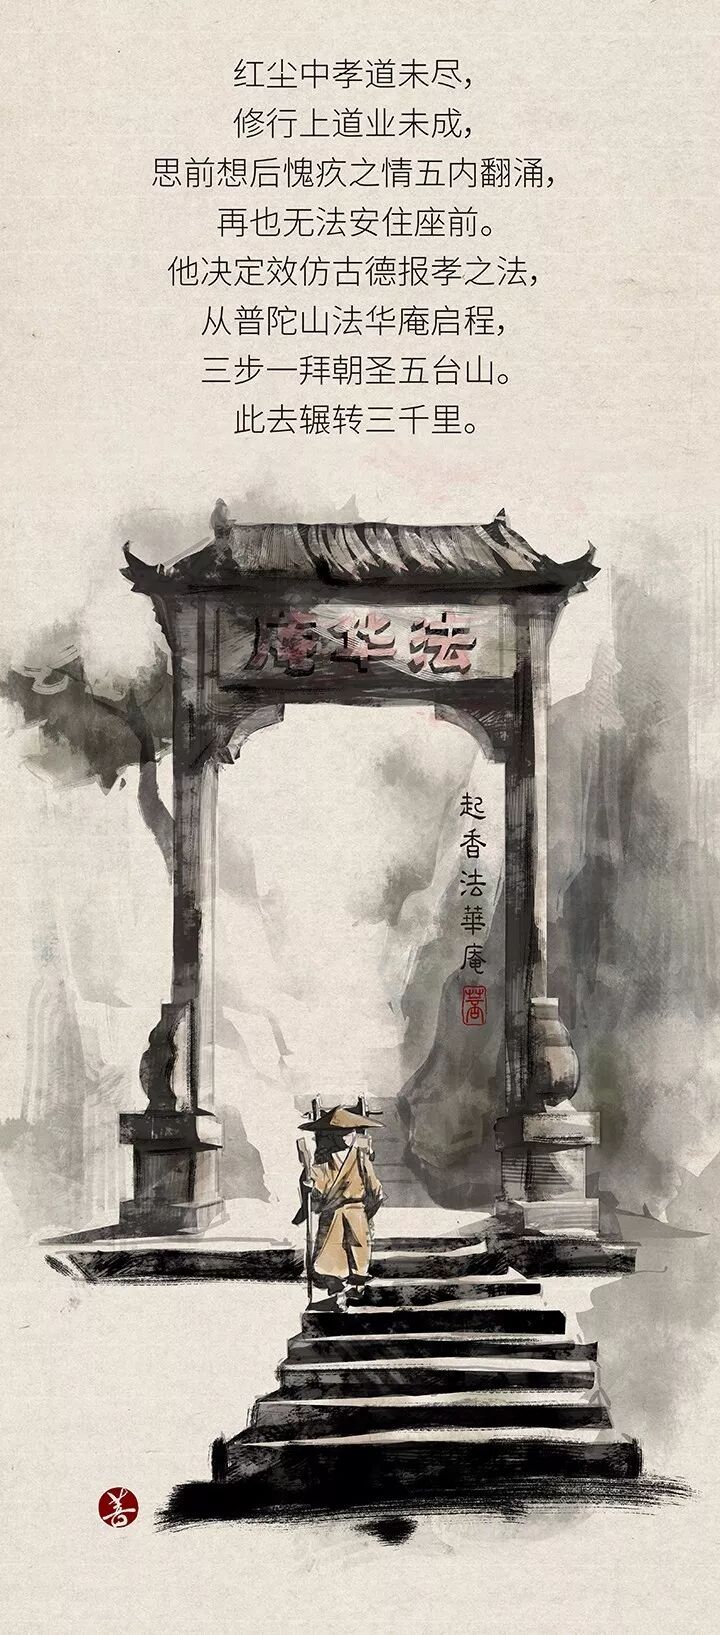 红尘中孝道未尽，
修行上道业未成，
思前想后愧疚之情五内翻涌，
再也无法安住座前。
他决定效仿古德报孝之法，
从普陀山法华庵启程，
三步一拜朝圣五台山。
此去辗转三千里。
庵华法
起香法華庵
善